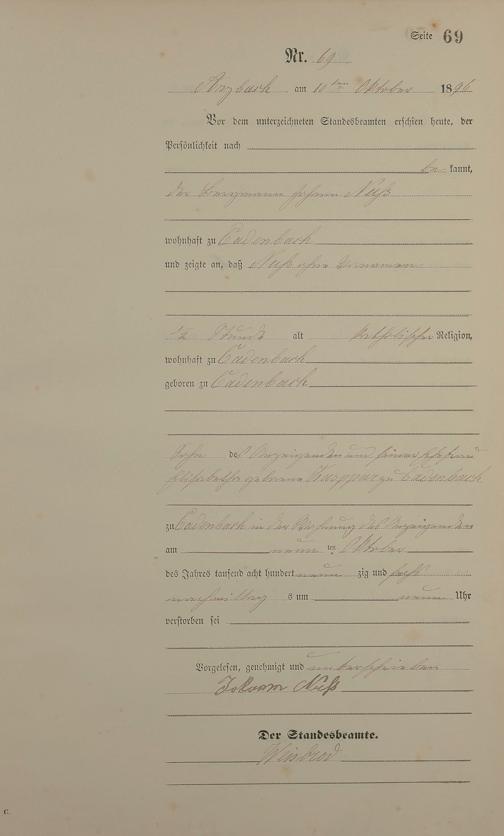 Seite 69
Nr. 69
Arzbach am 10ten Oktober 1896
Vor dem unterzeichneten Standesbeamten erschien heute, der
Persönlichkeit nach
be kannt,
der Bergmann Johann Nuß
wohnhaft zu Cadenbach
und zeigte an, daß Nuß ohne Vornamen
1/2 Stunde alt katholischer Religion,
wohnhaft zu Cadenbach
geboren zu Cadenbach
Sohn des Anzeigenden und seiner Ehefrau
Elisabetha geborene Kaspar zu Cadenbach
zu Cadenbach in der Wohnung des Anzeigenden
am neunten Oktober
des Jahres tausend acht hundert neunzig und sechs
nachmittags um neun Uhr
verstorben sei
Vorgelesen, genehmigt und unterschrieben
Johann Nuß
Der Standesbeamte.
Weisbrod
C.